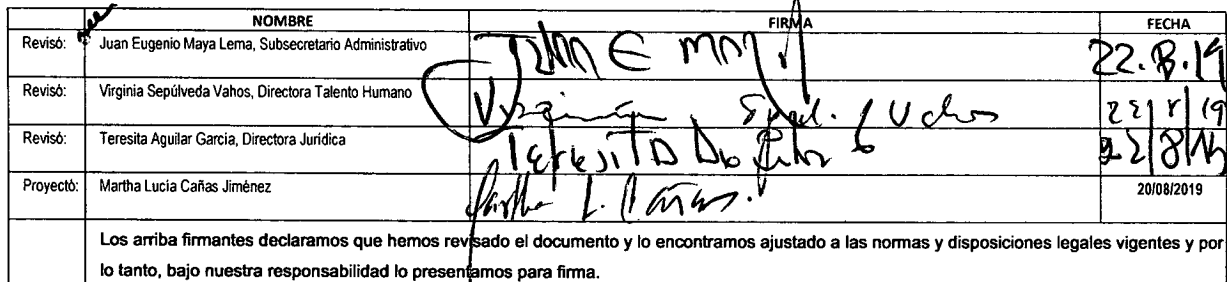 NOMBRE FIRMA FECHA
Revisó: Juan Eugenio Maya Lema, Subsecretario Administrativo JUAN E MAYA 22.8.19
Revisó: Virginia Sepúlveda Vahos, Directora Talento Humano Virginia Vahos 22/8/19
Revisó: Teresita Aguilar Garcia, Directora Jurídica Teresita 22/8/19
Proyectó: Martha Lucía Cañas Jiménez Martha L. Cañas. 20/08/2019
Los arriba firmantes declaramos que hemos revisado el documento y lo encontramos ajustado a las normas y disposiciones legales vigentes y por
lo tanto, bajo nuestra responsabilidad lo presentamos para firma.